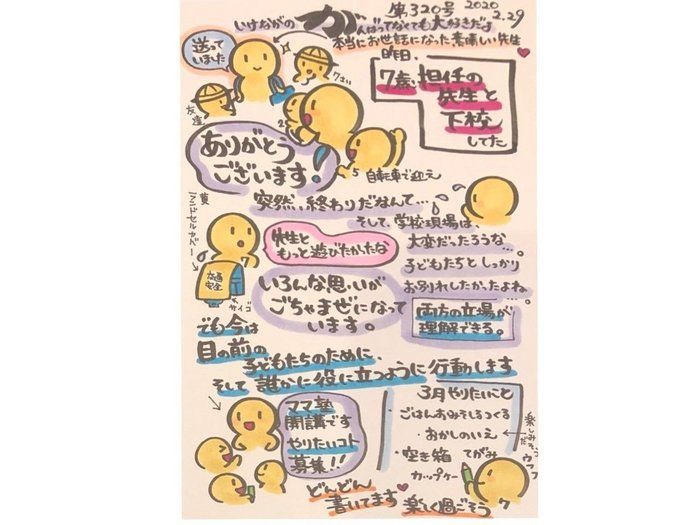 いけながの がんばってなくても大好きだよ 第320号 2020 2.29
本当にお世話になった素晴しい先生
送って
いました
7さい
友達
昨日、
7歳、担任の
先生と
下校
してた
ありがとう
ございます!
5
自転車で迎え
突然、終わりだなんて…、
黄
ランドセルカバー
交通
安全
サイゴ
先生と
もっと遊びたかったな
そして、学校現場は、
大変だったろうな…。
子どもたちとしっかり
お別れしたかったよね。
いろんな思いが
ごちゃまぜになって
います。
両方の立場が
理解できる。
でも今は
目の前の
子どもたちのために、
そして 誰かに役に立つように行動します
ママ塾
開講です
やりたいコト
募集!!
3月やりたいこと
ごはんおみそしるつくる
・おかしのいえ
・空き箱 てがみ
カップケーキ
どんどん
書いてます
楽しく過ごそう